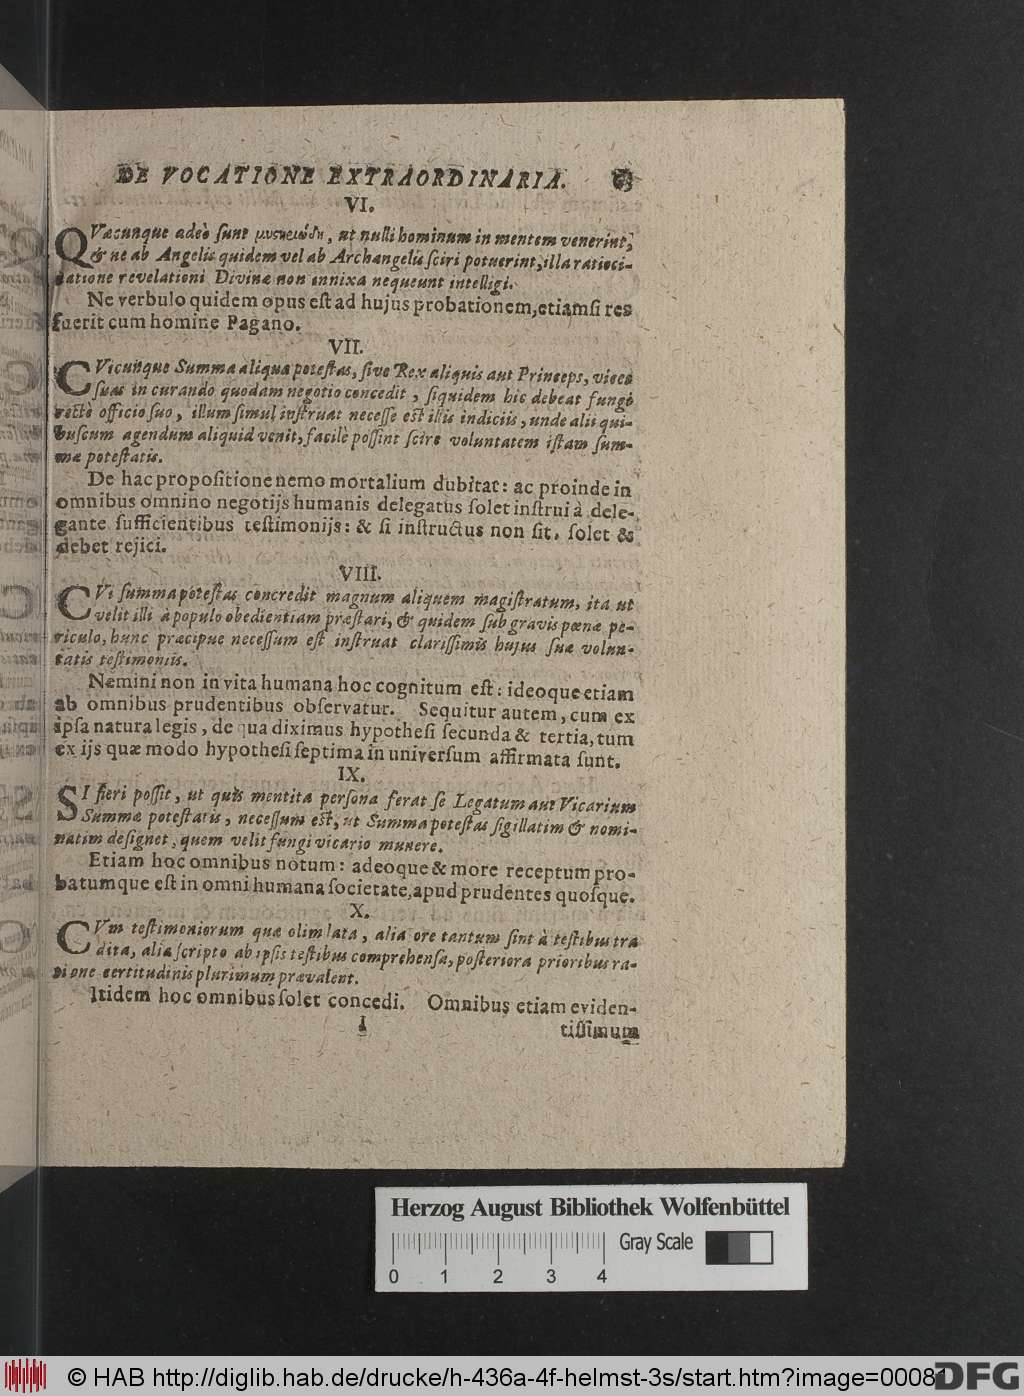 DE VOCATIONE EXTRAORDINARIA.
VI.
QVæcunque adeò sunt μυστηριώδη, ut nulli hominum in mentem venerint,
& ne ab Angelis quidem vel ab Archangelis sciri potuerint, illa ratioci-
natione revelationi Divinæ non innixa nequeunt intelligi.
Ne verbulo quidem opus est ad hujus probationem, etiamsi res
fuerit cum homine Pagano.
VII.
CVicunque Summa aliqua potestas, sive Rex aliquis aut Princeps, vices
suas in curando quodam negotio concedit, siquidem hic debeat fungi
rectè officio suo, illum simul instruat necesse est illis indiciis, unde alii qui-
buscum agendum aliquid venit, facilè possint scire voluntatem istam sum-
mæ potestatis.
De hac propositione nemo mortalium dubitat: ac proinde in
omnibus omnino negotijs humanis delegatus solet instrui à dele-
gante sufficientibus testimonijs: & si instructus non sit, solet &
debet rejici.
VIII.
CVi summa potestas concredit magnum aliquem magistratum, ita ut
velit illi à populo obedientiam præstari, & quidem sub gravis pœnæ pe-
riculo, hunc præcipue necessum est instruat clarissimis hujus suæ volun-
tatis testimoniis.
Nemini non in vita humana hoc cognitum est: ideoque etiam
ab omnibus prudentibus observatur. Sequitur autem, cum ex
ipsa natura legis, de qua diximus hypothesi secunda & tertia, tum
ex ijs quæ modo hypothesi septima in universum affirmata sunt.
IX.
SI fieri possit, ut quis mentita persona ferat se Legatum aut Vicarium
Summæ potestatis, necessum est, ut Summa potestas sigillatim & nomi-
natim designet, quem velit fungi vicario munere.
Etiam hoc omnibus notum: adeoque & more receptum pro-
batumque est in omni humana societate, apud prudentes quosque.
X.
CVm testimoniorum quæ olim lata, alia ore tantum sint à testibus tra
dita, alia scripto ab ipsis testibus comprehensa, posteriora prioribus ra-
tione certitudinis plurimum prævalent.
Itidem hoc omnibus solet concedi. Omnibus etiam eviden-
I
tissimum
Herzog August Bibliothek Wolfenbüttel
Gray Scale
0 1 2 3 4
© HAB http://diglib.hab.de/drucke/h-436a-4f-helmst-3s/start.htm?image=00081
DFG